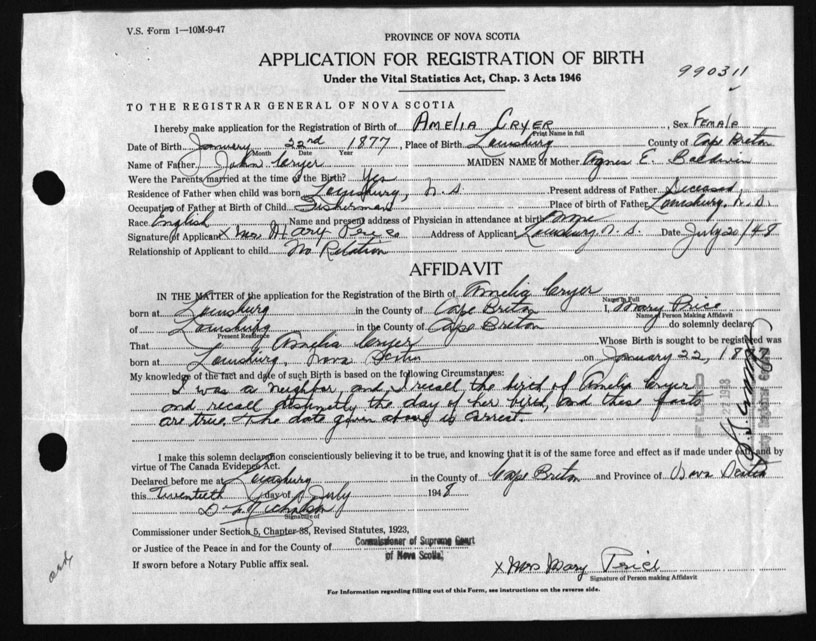 V.S. Form 1—10M-9-47
PROVINCE OF NOVA SCOTIA
APPLICATION FOR REGISTRATION OF BIRTH
990311
Under the Vital Statistics Act, Chap. 3 Acts 1946
TO THE REGISTRAR GENERAL OF NOVA SCOTIA
I hereby make application for the Registration of Birth of AMELIA CRYER, Sex FEMALE
Print Name in full
Date of Birth January 22nd 1877, Place of Birth Louisburg County of Cape Breton
Month Date Year
Name of Father John Cryer MAIDEN NAME of Mother Agnes E. Baldwin
Were the Parents married at the time of the Birth? Yes
Residence of Father when child was born Louisburg, N.S. Present address of Father Deceased
Occupation of Father at Birth of Child Fisherman Place of birth of Father Louisburg, N.S.
Race English Name and present address of Physician in attendance at birth None
Signature of Applicant x Mrs Mary Price Address of Applicant Louisburg N.S. Date July 20/48
Relationship of Applicant to child No Relation
AFFIDAVIT
IN THE MATTER of the application for the Registration of the Birth of Amelia Cryer
Name in Full
born at Louisburg in the County of Cape Breton I, Mary Price
Name of Person Making Affidavit
of Louisburg in the County of Cape Breton do solemnly declare:
Present Residence
That Amelia Cryer Whose Birth is sought to be registered was
born at Louisburg, Nova Scotia on January 22, 1877
My knowledge of the fact and date of such Birth is based on the following Circumstances:
I was a neighbor, and I recall the birth of Amelia Cryer
and recall distinctly the day of her birth, and these facts
are true. The date given above is correct.
FILED
I make this solemn declaration conscientiously believing it to be true, and knowing that it is of the same force and effect as if made under oath and by
virtue of The Canada Evidence Act.
Declared before me at Louisburg in the County of Cape Breton and Province of Nova Scotia
this Twentieth day of July 1948
Signature of
Commissioner under Section 5, Chapter 38, Revised Statutes, 1923,
or Justice of the Peace in and for the County of Commissioner of Supreme Court
of Nova Scotia,
If sworn before a Notary Public affix seal.
x Mrs Mary Price
Signature of Person making Affidavit
For Information regarding filling out of this Form, see instructions on the reverse side.